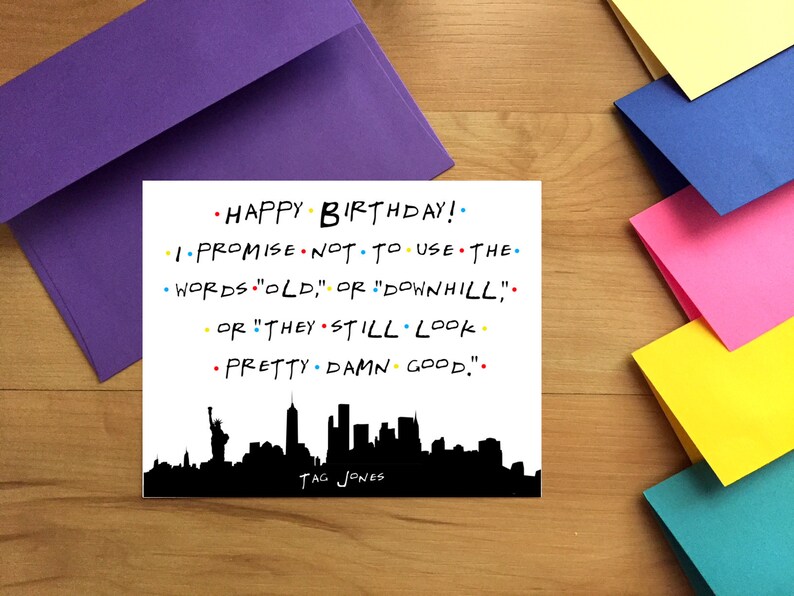 • HAPPY • BIRTHDAY! •
• I • PROMISE • NOT • TO • USE • THE •
• WORDS • "OLD," • OR • "DOWNHILL," •
• OR • "THEY • STILL • LOOK •
• PRETTY • DAMN • GOOD." •
TAG JONES